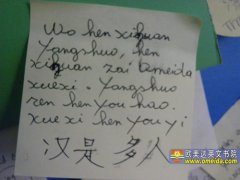 Wo hen xiguan
Yangshuo, hen
xiguan zai Omeida
xuexi. Yangshuo
ren hen you hao.
xue xi hen you yi
汉是 多人
欧美达英文书院
www.omeida.com